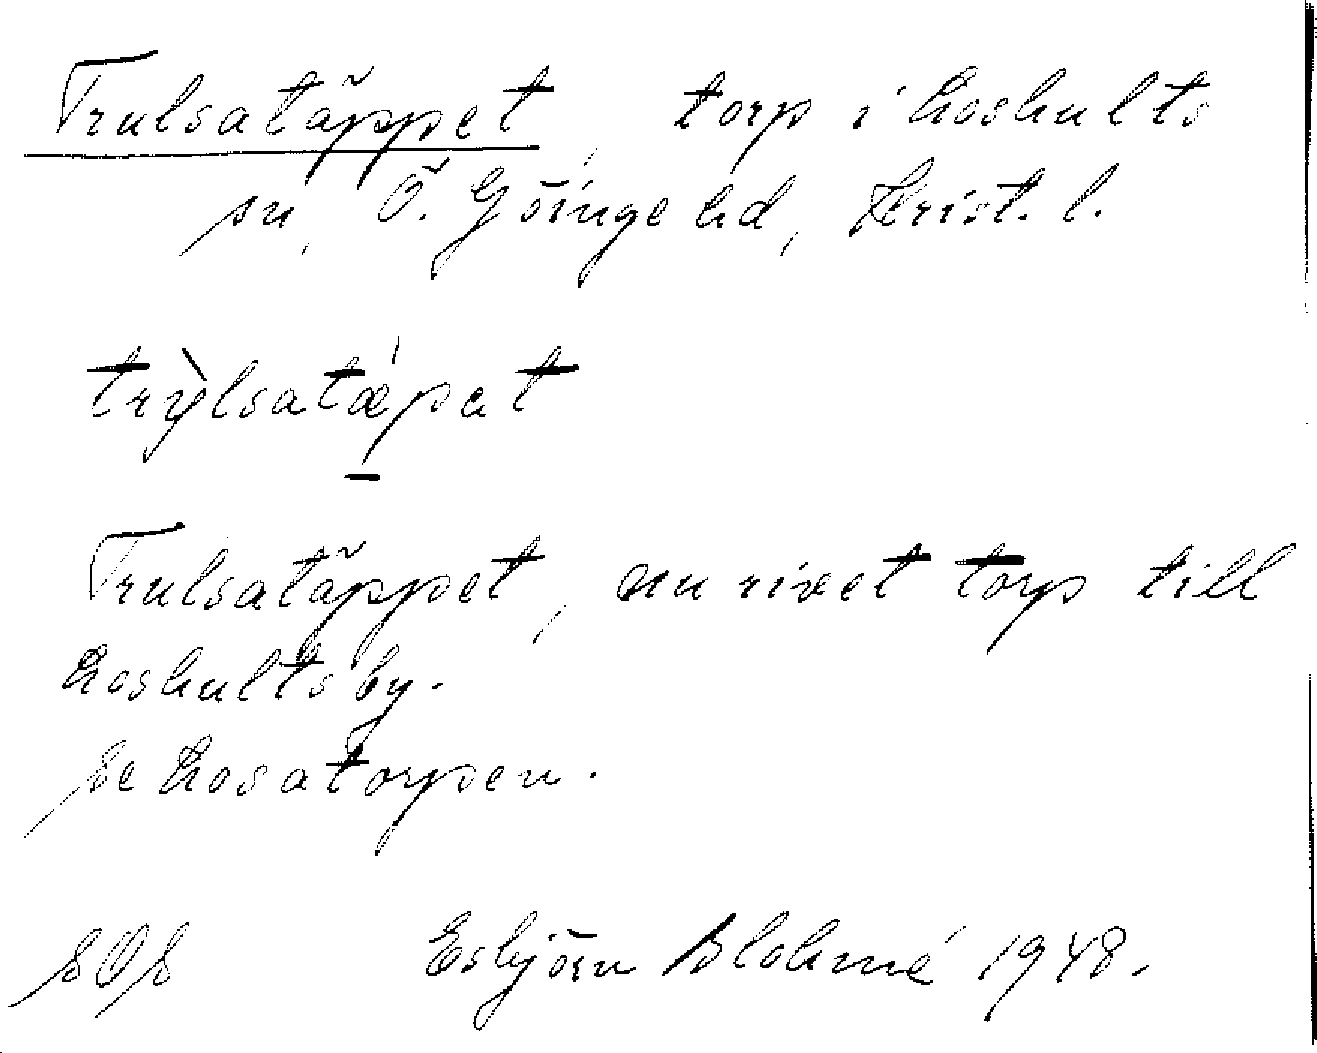 Trulsatäppet, torp i Loshults
sn, Ö. Göinge hd, Krist. l.
trỳlsatǽpat
Trulsatäppet, nu rivet torp till
Loshults by.
Se Losatorpen.
SOS Esbjörn Blohmé 1948.